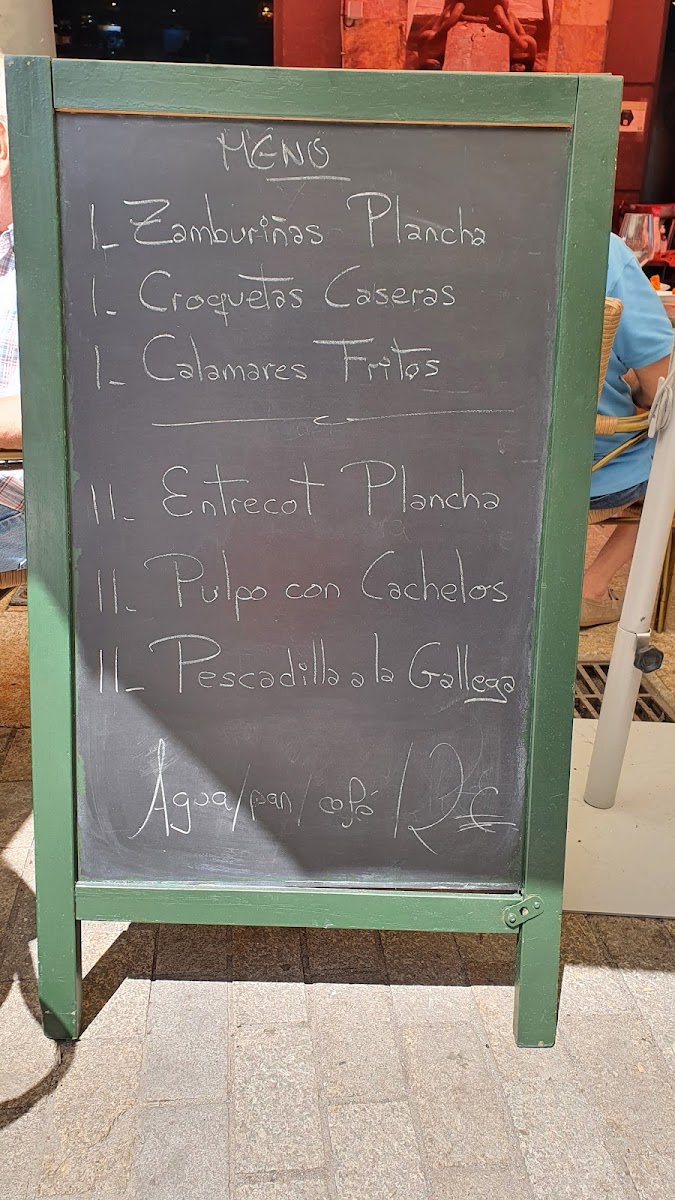 MENÚ
I- Zamburiñas Plancha
I- Croquetas Caseras
I- Calamares Fritos
II- Entrecot Plancha
II- Pulpo con Cachelos
II- Pescadilla a la Gallega
Agua/pan/café/